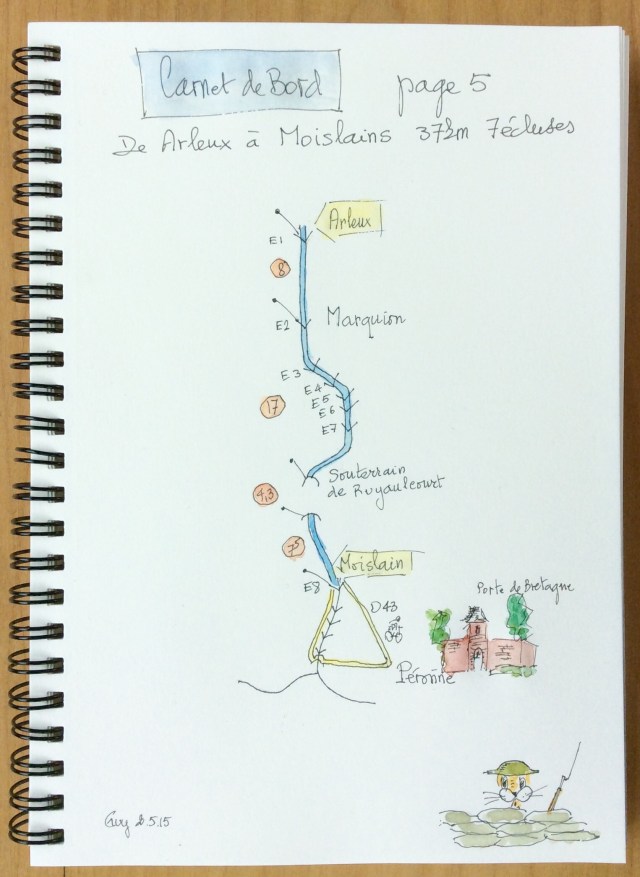 Carnet de Bord page 5
De Arleux à Moislains 37km 7écluses
Arleux
E1
8
E2 Marquion
E3
E4
17 E5
E6
E7
Souterrain
de Ruyaulcourt
4,3
75
Moislain
E8
D43
Porte de Bretagne
Péronne
5.15